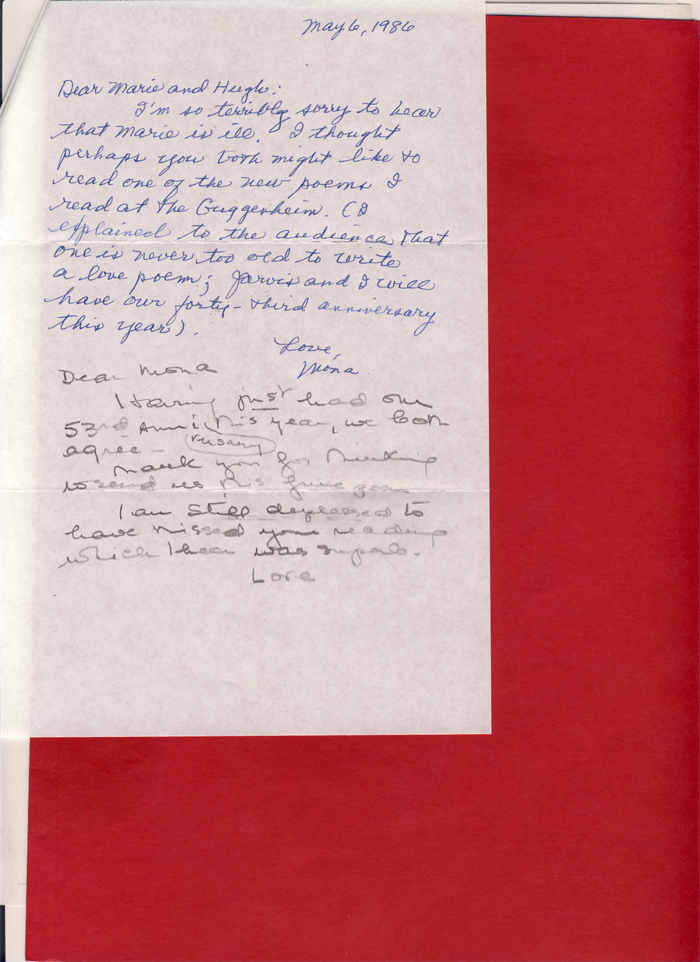 May 6, 1986
Dear Marie and Hugh:
I'm so terribly sorry to hear
that Marie is ill. I thought
perhaps you both might like to
read one of the new poems I
read at the Guggenheim. (I
explained to the audience that
one is never too old to write
a love poem; Jarvis and I will
have our forty-third anniversary
this year).
Love,
Mona
Dear Mona
Having just had our
53rd Anni this year, we both
versary
agree –
Thank you for thinking
to send us this fine poem
I am still depressed to
have missed your reading
which I hear was superb.
Love